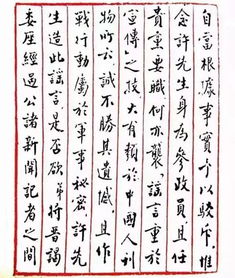 自當根據事實予以駁斥惟
念許先生身為參政員且任
貴重要職何亦襲「謠言重於
宣傳」之技大有類於中國人刊
物所云誠不勝其遺憾且作
戰行動屬於軍事秘密許先
生造此謠言是否欲弟將晉謁
委座經過公諸新聞記者之間